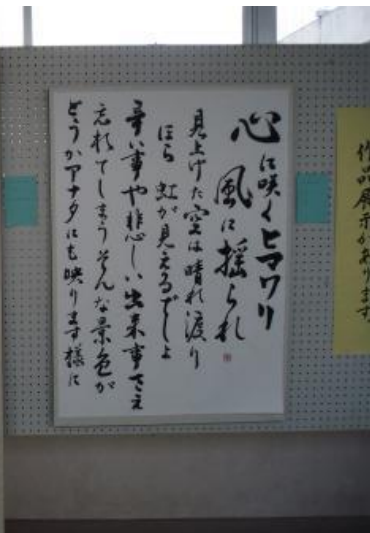 心に咲くヒマワリ
風に揺られ
見上げた空は晴れ渡り
ほら 虹が見えるでしょ
辛い事や悲しい出来事さえ
忘れてしまうそんな景色が
どうかアナタにも映ります様に
作品展示があります